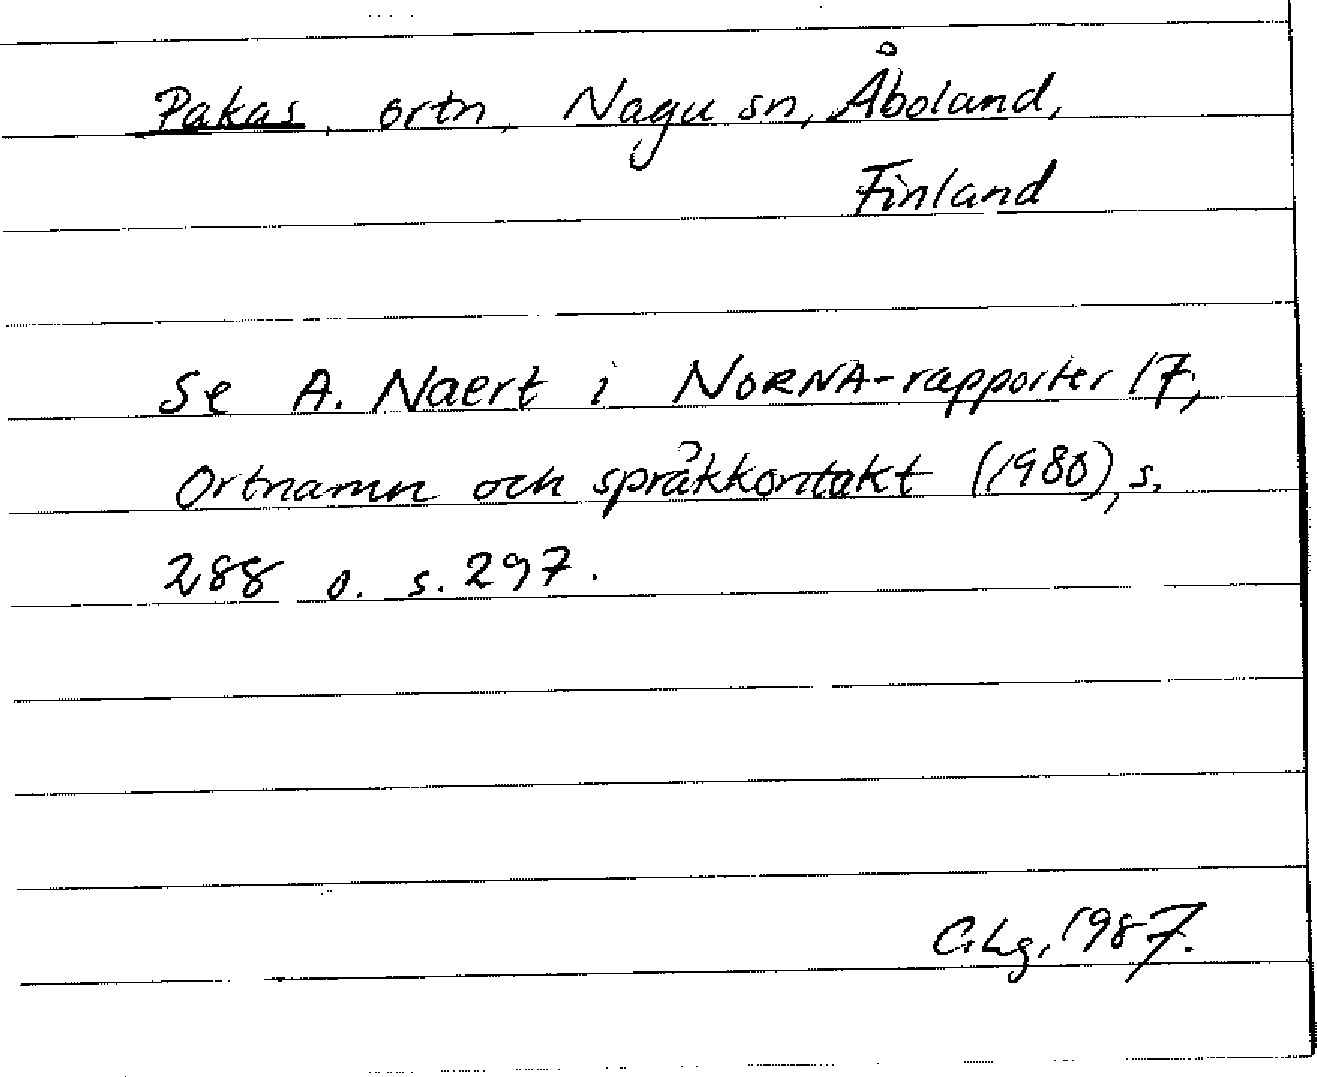 Pakas, ortn, Nagu sn, Åboland,
Finland
Se A. Naert i NORNA-rapporter 17,
Ortnamn och språkkontakt (1980), s.
288 o. s. 297.
1987.